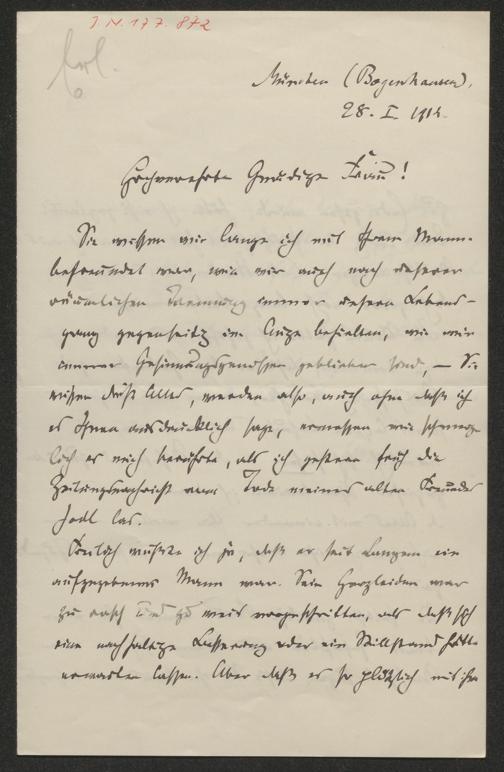 J.N. 177.872
Erl.
München (Bogenhausen),
28. I. 1914.
Hochverehrte Gnädige Frau!
Sie wissen wie lange ich mit Ihrem Manne
befreundet war, wie wir auch nach unserer
räumlichen Trennung immer unsern Lebens-
gang gegenseitig im Auge behielten, wie wir
immer Gesinnungsgenossen geblieben sind, — Sie
wissen dieß Alles, werden also, auch ohne daß ich
es Ihnen ausdrücklich sage, ermessen wie schmerz-
lich es mich berührte, als ich gestern früh die
Zeitungsnachricht vom Tode meines alten Freundes
Jodl las.
Freilich wußte ich ja, daß er seit Langem ein
aufgegebener Mann war. Sein Herzleiden war
zu rasch und zu weit vorgeschritten, als daß sich
eine nachhaltige Besserung oder ein Stillstand hätte
erwarten lassen. Aber daß es so plötzlich mit ihm